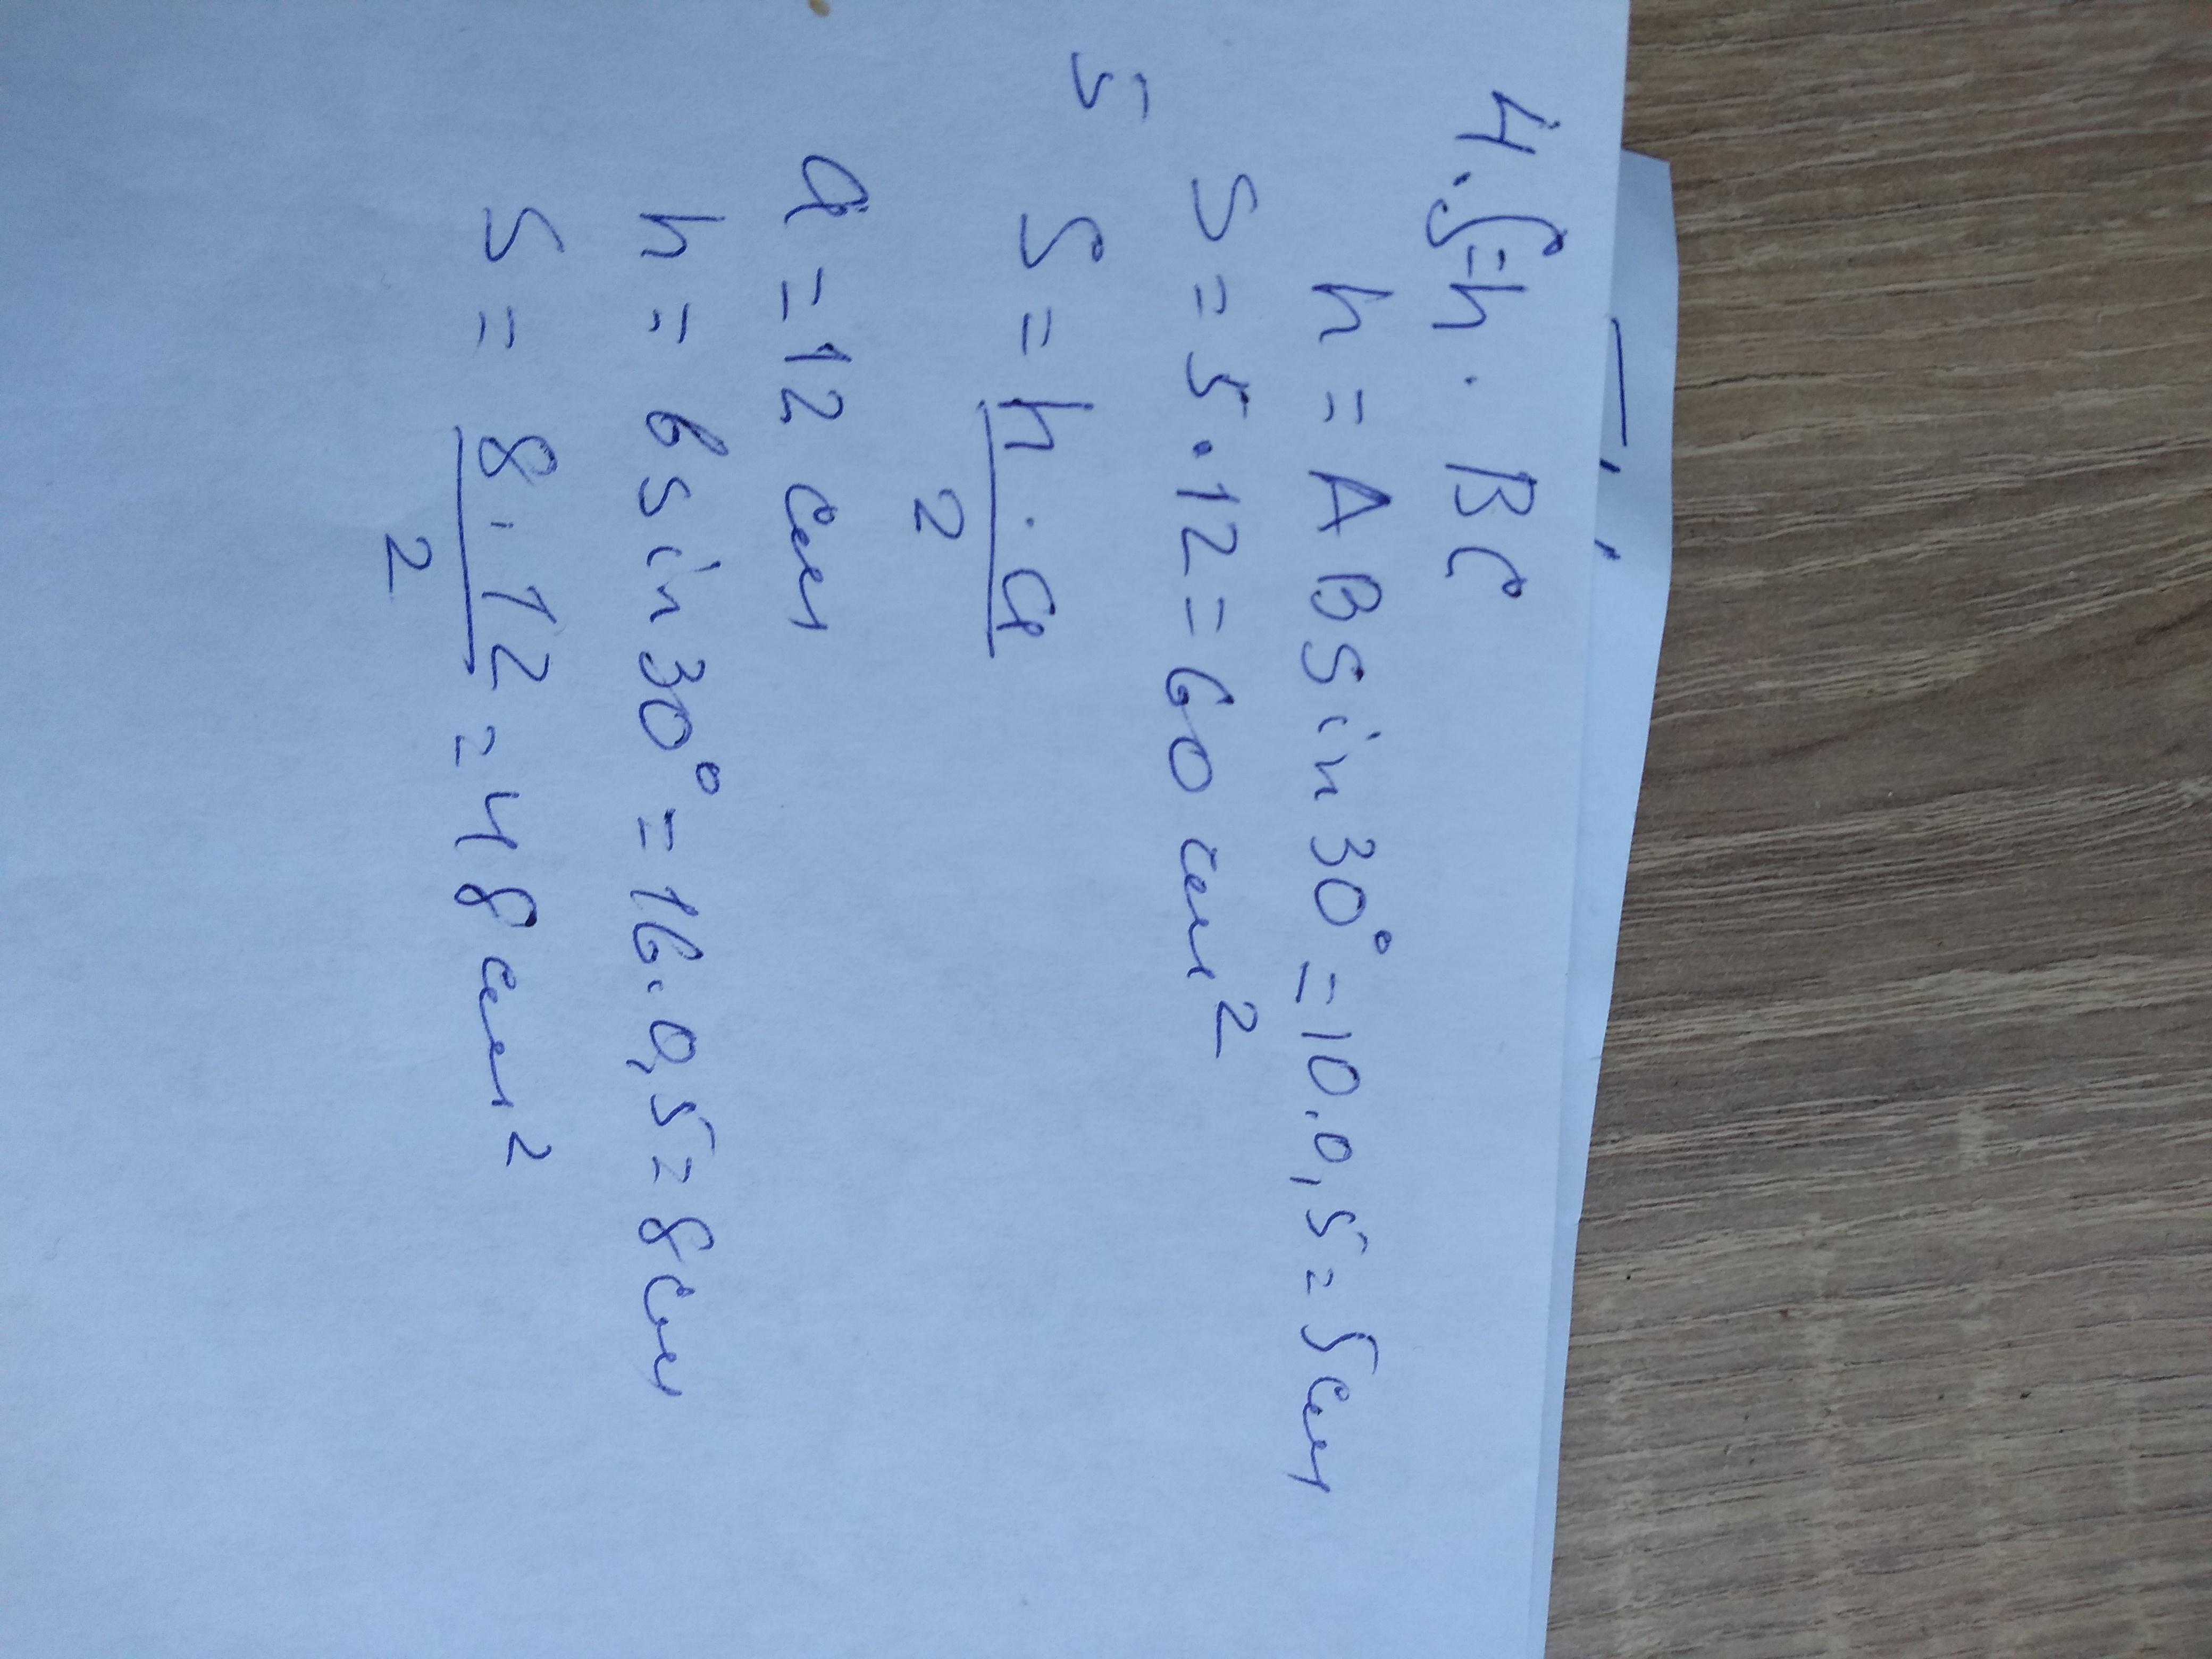 4. S = h · BC
h = AB sin 30° = 10 · 0,5 = 5 см
S = 5 · 12 = 60 см²
5 S = h · a / 2
a = 12 см
h = b sin 30° = 16 · 0,5 = 8 см
S = 8 · 12 / 2 = 48 см²